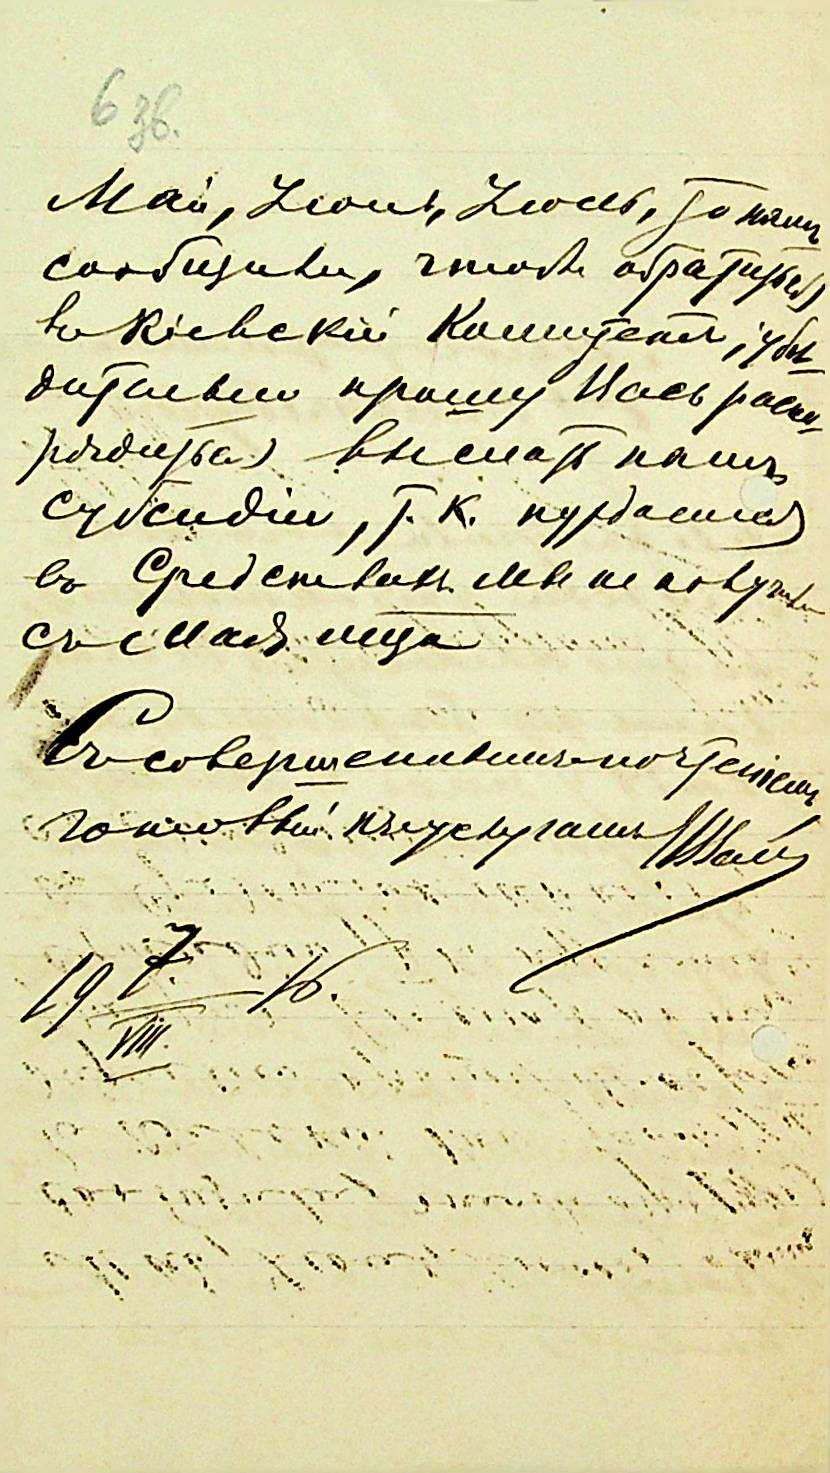 6 зв.
Май, Июнь, Июль, то нам
сообщили, чтобы обратиться
въ Кіевскій Комитетъ, убѣ-
дительно прошу Васъ распо-
рядиться выслать намъ
субсидіи, т. к. нуждаемся
въ Средствахъ. Мы не получили
съ Мая мца
Съ совершеннымъ почтеніемъ
готовый къ услугамъ
19 7/VIII 16.